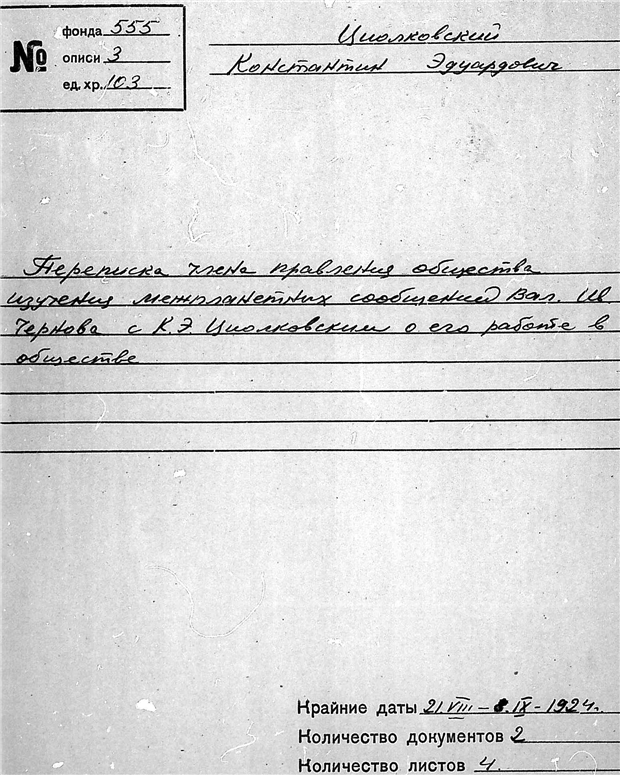 №
фонда 555
описи 3
ед. хр. 103
Циолковский
Константин Эдуардович
Переписка члена правления общества
изучения межпланетных сообщений Вал. Ив
Чернова с К.Э. Циолковским о его работе в
обществе
Крайние даты 21.VIII – 8.IX - 1924г.
Количество документов 2
Количество листов 4.